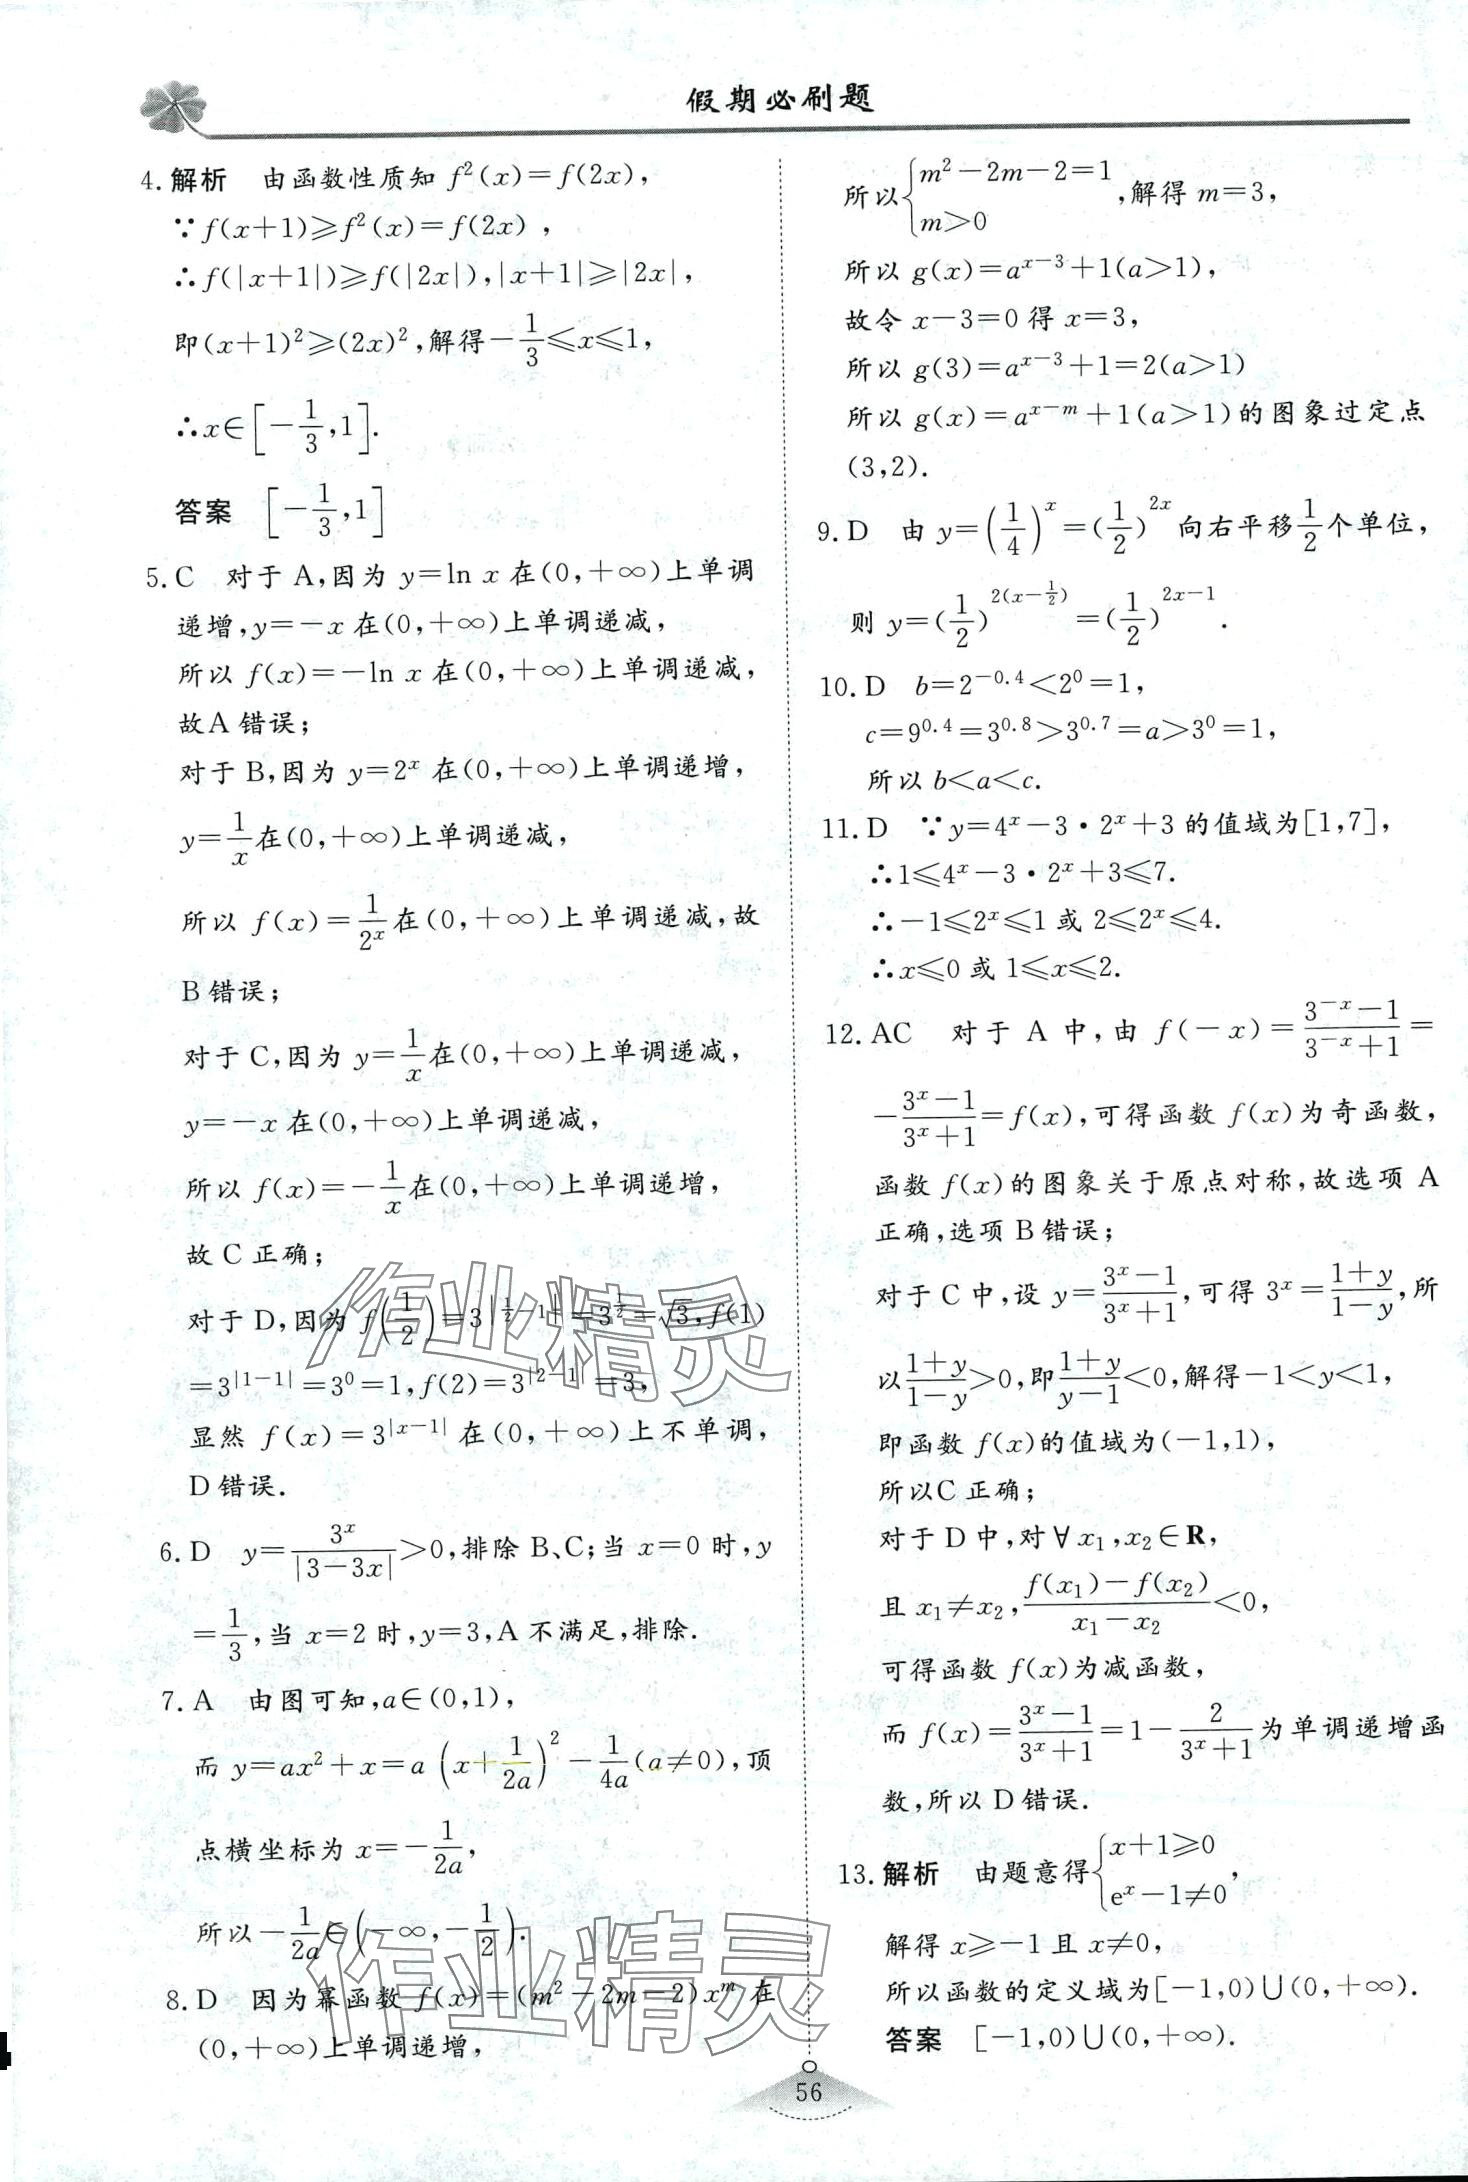 假期必刷题
4. 解析　由函数性质知 f²(x)=f(2x),
∵f(x+1)⩾f²(x)=f(2x),
∴f(|x+1|)⩾f(|2x|),|x+1|⩾|2x|,
即(x+1)²⩾(2x)²,解得-1/3⩽x⩽1,
∴x∈[-1/3,1].
答案　[-1/3,1]
5. C　对于 A,因为 y=ln x 在(0,+∞)上单调
递增,y=-x 在(0,+∞)上单调递减,
所以 f(x)=-ln x 在(0,+∞)上单调递减,
故A 错误;
对于 B,因为 y=2^x 在(0,+∞)上单调递增,
y=1/x在(0,+∞)上单调递减,
所以 f(x)=1/2^x在(0,+∞)上单调递减,故
B 错误;
对于 C,因为 y=1/x在(0,+∞)上单调递减,
y=-x 在(0,+∞)上单调递减,
所以 f(x)=-1/x在(0,+∞)上单调递增,
故 C 正确;
对于 D,因为 f(1/2)=3^|1/2-1|=3^(1/2)=√3,f(1)
=3^|1-1|=3⁰=1,f(2)=3^|2-1|=3,
显然 f(x)=3^|x-1|在(0,+∞)上不单调,
D 错误.
6. D　y=3^x/|3-3x|>0,排除 B、C;当 x=0 时,y
=1/3,当 x=2 时,y=3,A 不满足,排除.
7. A　由图可知,a∈(0,1),
而 y=ax²+x=a(x+1/2a)²-1/4a(a≠0),顶
点横坐标为 x=-1/2a,
所以-1/2a∈(-∞,-1/2).
8. D　因为幂函数 f(x)=(m²-2m-2)x^m 在
(0,+∞)上单调递增,
所以{m²-2m-2=1
m>0 ,解得 m=3,
所以 g(x)=a^(x-3)+1(a>1),
故令 x-3=0 得 x=3,
所以 g(3)=a^(x-3)+1=2(a>1)
所以 g(x)=a^(x-m)+1(a>1)的图象过定点
(3,2).
9. D　由 y=(1/4)^x=(1/2)^2x向右平移1/2个单位,
则 y=(1/2)^2(x-1/2)=(1/2)^(2x-1).
10. D　b=2^-0.4<2⁰=1,
c=9^0.4=3^0.8>3^0.7=a>3⁰=1,
所以 b<a<c.
11. D　∵y=4^x-3·2^x+3 的值域为[1,7],
∴1⩽4^x-3·2^x+3⩽7.
∴-1⩽2^x⩽1 或 2⩽2^x⩽4.
∴x⩽0 或 1⩽x⩽2.
12. AC　对于 A 中,由 f(-x)=(3^-x-1)/(3^-x+1)=
-(3^x-1)/(3^x+1)=f(x),可得函数 f(x)为奇函数,
函数 f(x)的图象关于原点对称,故选项 A
正确,选项 B 错误;
对于 C 中,设 y=(3^x-1)/(3^x+1),可得 3^x=(1+y)/(1-y),所
以(1+y)/(1-y)>0,即(1+y)/(y-1)<0,解得-1<y<1,
即函数 f(x)的值域为(-1,1),
所以C 正确;
对于 D 中,对∀x₁,x₂∈R,
且 x₁≠x₂,(f(x₁)-f(x₂))/(x₁-x₂)<0,
可得函数 f(x)为减函数,
而 f(x)=(3^x-1)/(3^x+1)=1-2/(3^x+1)为单调递增函
数,所以 D 错误.
13. 解析　由题意得{x+1⩾0
e^x-1≠0 ,
解得 x⩾-1 且 x≠0,
所以函数的定义域为[-1,0)∪(0,+∞).
答案　[-1,0)∪(0,+∞).
56
作业精灵
作业精灵